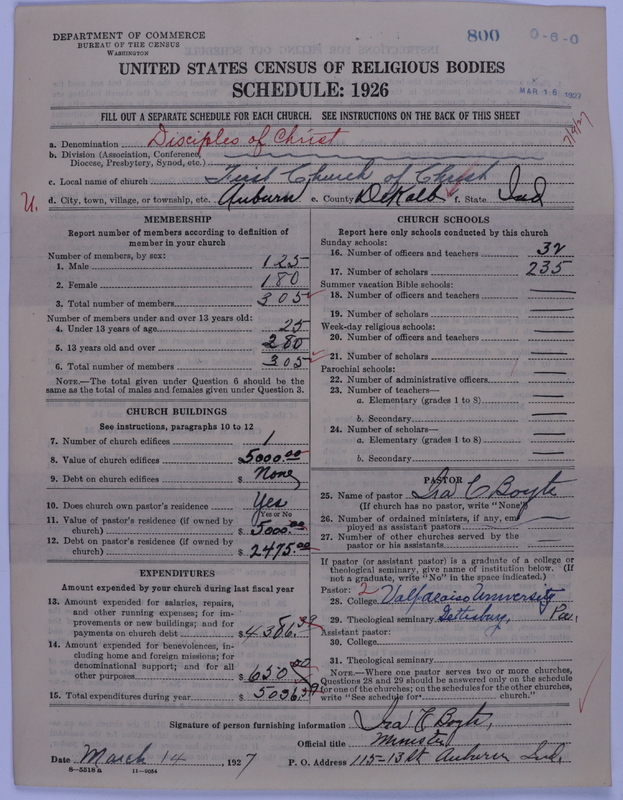 DEPARTMENT OF COMMERCE
BUREAU OF THE CENSUS
WASHINGTON
800 0-6-0
UNITED STATES CENSUS OF RELIGIOUS BODIES
SCHEDULE: 1926
MAR 16 1927
FILL OUT A SEPARATE SCHEDULE FOR EACH CHURCH. SEE INSTRUCTIONS ON THE BACK OF THIS SHEET
7/9/27
a. Denomination Disciples of Christ
b. Division (Association, Conference, Diocese, Presbytery, Synod, etc.)
c. Local name of church First Church of Christ
U. d. City, town, village, or township, etc. Auburn e. County DeKalb f. State Ind
MEMBERSHIP
Report number of members according to definition of
member in your church
Number of members, by sex:
1. Male 125
2. Female 180
3. Total number of members 305
Number of members under and over 13 years old:
4. Under 13 years of age 25
5. 13 years old and over 280
6. Total number of members 305
NOTE.—The total given under Question 6 should be the
same as the total of males and females given under Question 3.
CHURCH BUILDINGS
See instructions, paragraphs 10 to 12
7. Number of church edifices 1
8. Value of church edifices $ 5000.00
9. Debt on church edifices $ None
10. Does church own pastor's residence Yes
Yes or No
11. Value of pastor's residence (if owned by
church) $ 5000.00
12. Debt on pastor's residence (if owned by
church) $ 2475.00
EXPENDITURES
Amount expended by your church during last fiscal year
13. Amount expended for salaries, repairs,
and other running expenses; for im-
provements or new buildings; and for
payments on church debt $ 4386.39
14. Amount expended for benevolences, in-
cluding home and foreign missions; for
denominational support; and for all
other purposes $ 650.00
15. Total expenditures during year $ 5036.39
CHURCH SCHOOLS
Report here only schools conducted by this church
Sunday schools:
16. Number of officers and teachers 32
17. Number of scholars 235
Summer vacation Bible schools:
18. Number of officers and teachers
19. Number of scholars
Week-day religious schools:
20. Number of officers and teachers
21. Number of scholars
Parochial schools:
22. Number of administrative officers
23. Number of teachers—
a. Elementary (grades 1 to 8)
b. Secondary
24. Number of scholars—
a. Elementary (grades 1 to 8)
b. Secondary
PASTOR
25. Name of pastor Ira C Boyte
(If church has no pastor, write "None")
26. Number of ordained ministers, if any, em-
ployed as assistant pastors
27. Number of other churches served by the
pastor or his assistants
If pastor (or assistant pastor) is a graduate of a college or
theological seminary, give name of institution below. (If
not a graduate, write "No" in the space indicated.)
Pastor: 2
28. College Valparaiso University
29. Theological seminary Gettisburg, Pa.
Assistant pastor:
30. College
31. Theological seminary
NOTE.—Where one pastor serves two or more churches,
Questions 28 and 29 should be answered only on the schedule
for one of the churches; on the schedules for the other churches,
write "See schedule for church."
Signature of person furnishing information Ira C Boyte,
Official title Minister
Date March 14, 1927 P. O. Address 115-13 St Auburn Ind.
8—5518 a 11—9034